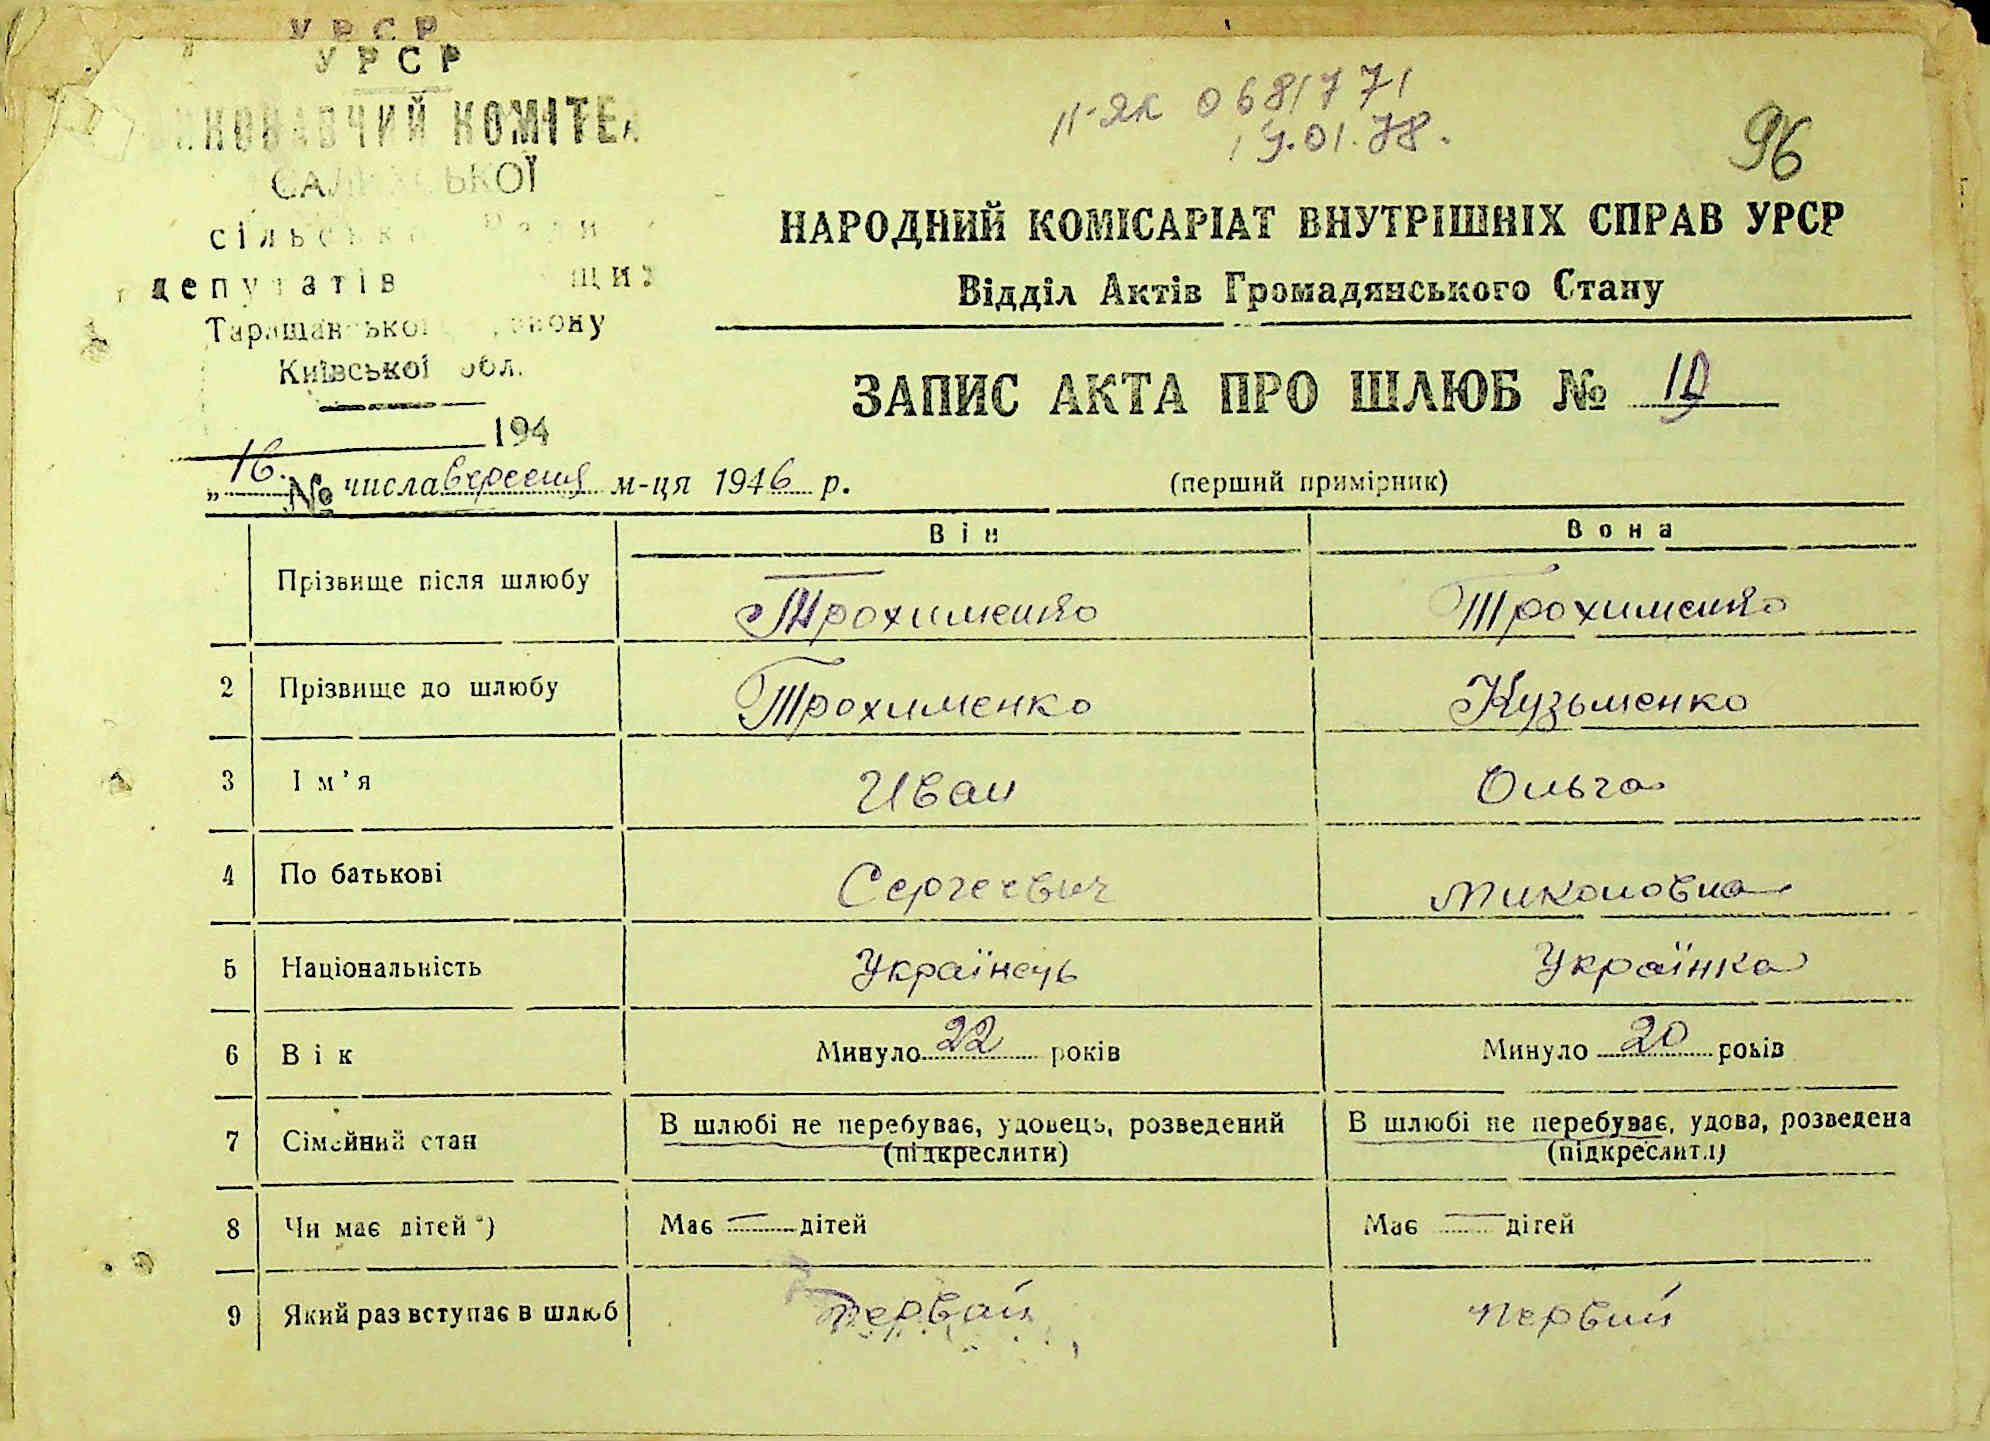 УРСР
УРСР
II-ЯК 0681771
19.01.78.
96
КОМІТЕ
НАРОДНИЙ КОМІСАРІАТ ВНУТРІШНІХ СПРАВ УРСР
Відділ Актів Громадянського Стану
депутатів
Таращанської району
Київської обл.
ЗАПИС АКТА ПРО ШЛЮБ №
194
„16. № числа вересня м-ця 1946 р.
(перший примірник)
Він Вона
Прізвище після шлюбу Трохименко Трохименко
2 Прізвище до шлюбу Трохименко Кузьменко
3 Ім'я Иван Ольга
4 По батькові Сергеевич Миколовна
5 Національність Українець Українка
6 Вік Минуло 22 років Минуло 20 років
7 Сімейний стан В шлюбі не перебуває, удовець, розведений В шлюбі не перебуває, удова, розведена
(підкреслити) (підкреслити)
8 Чи має дітей *) Має — дітей Має — дітей
9 Який раз вступає в шлюб первай первий